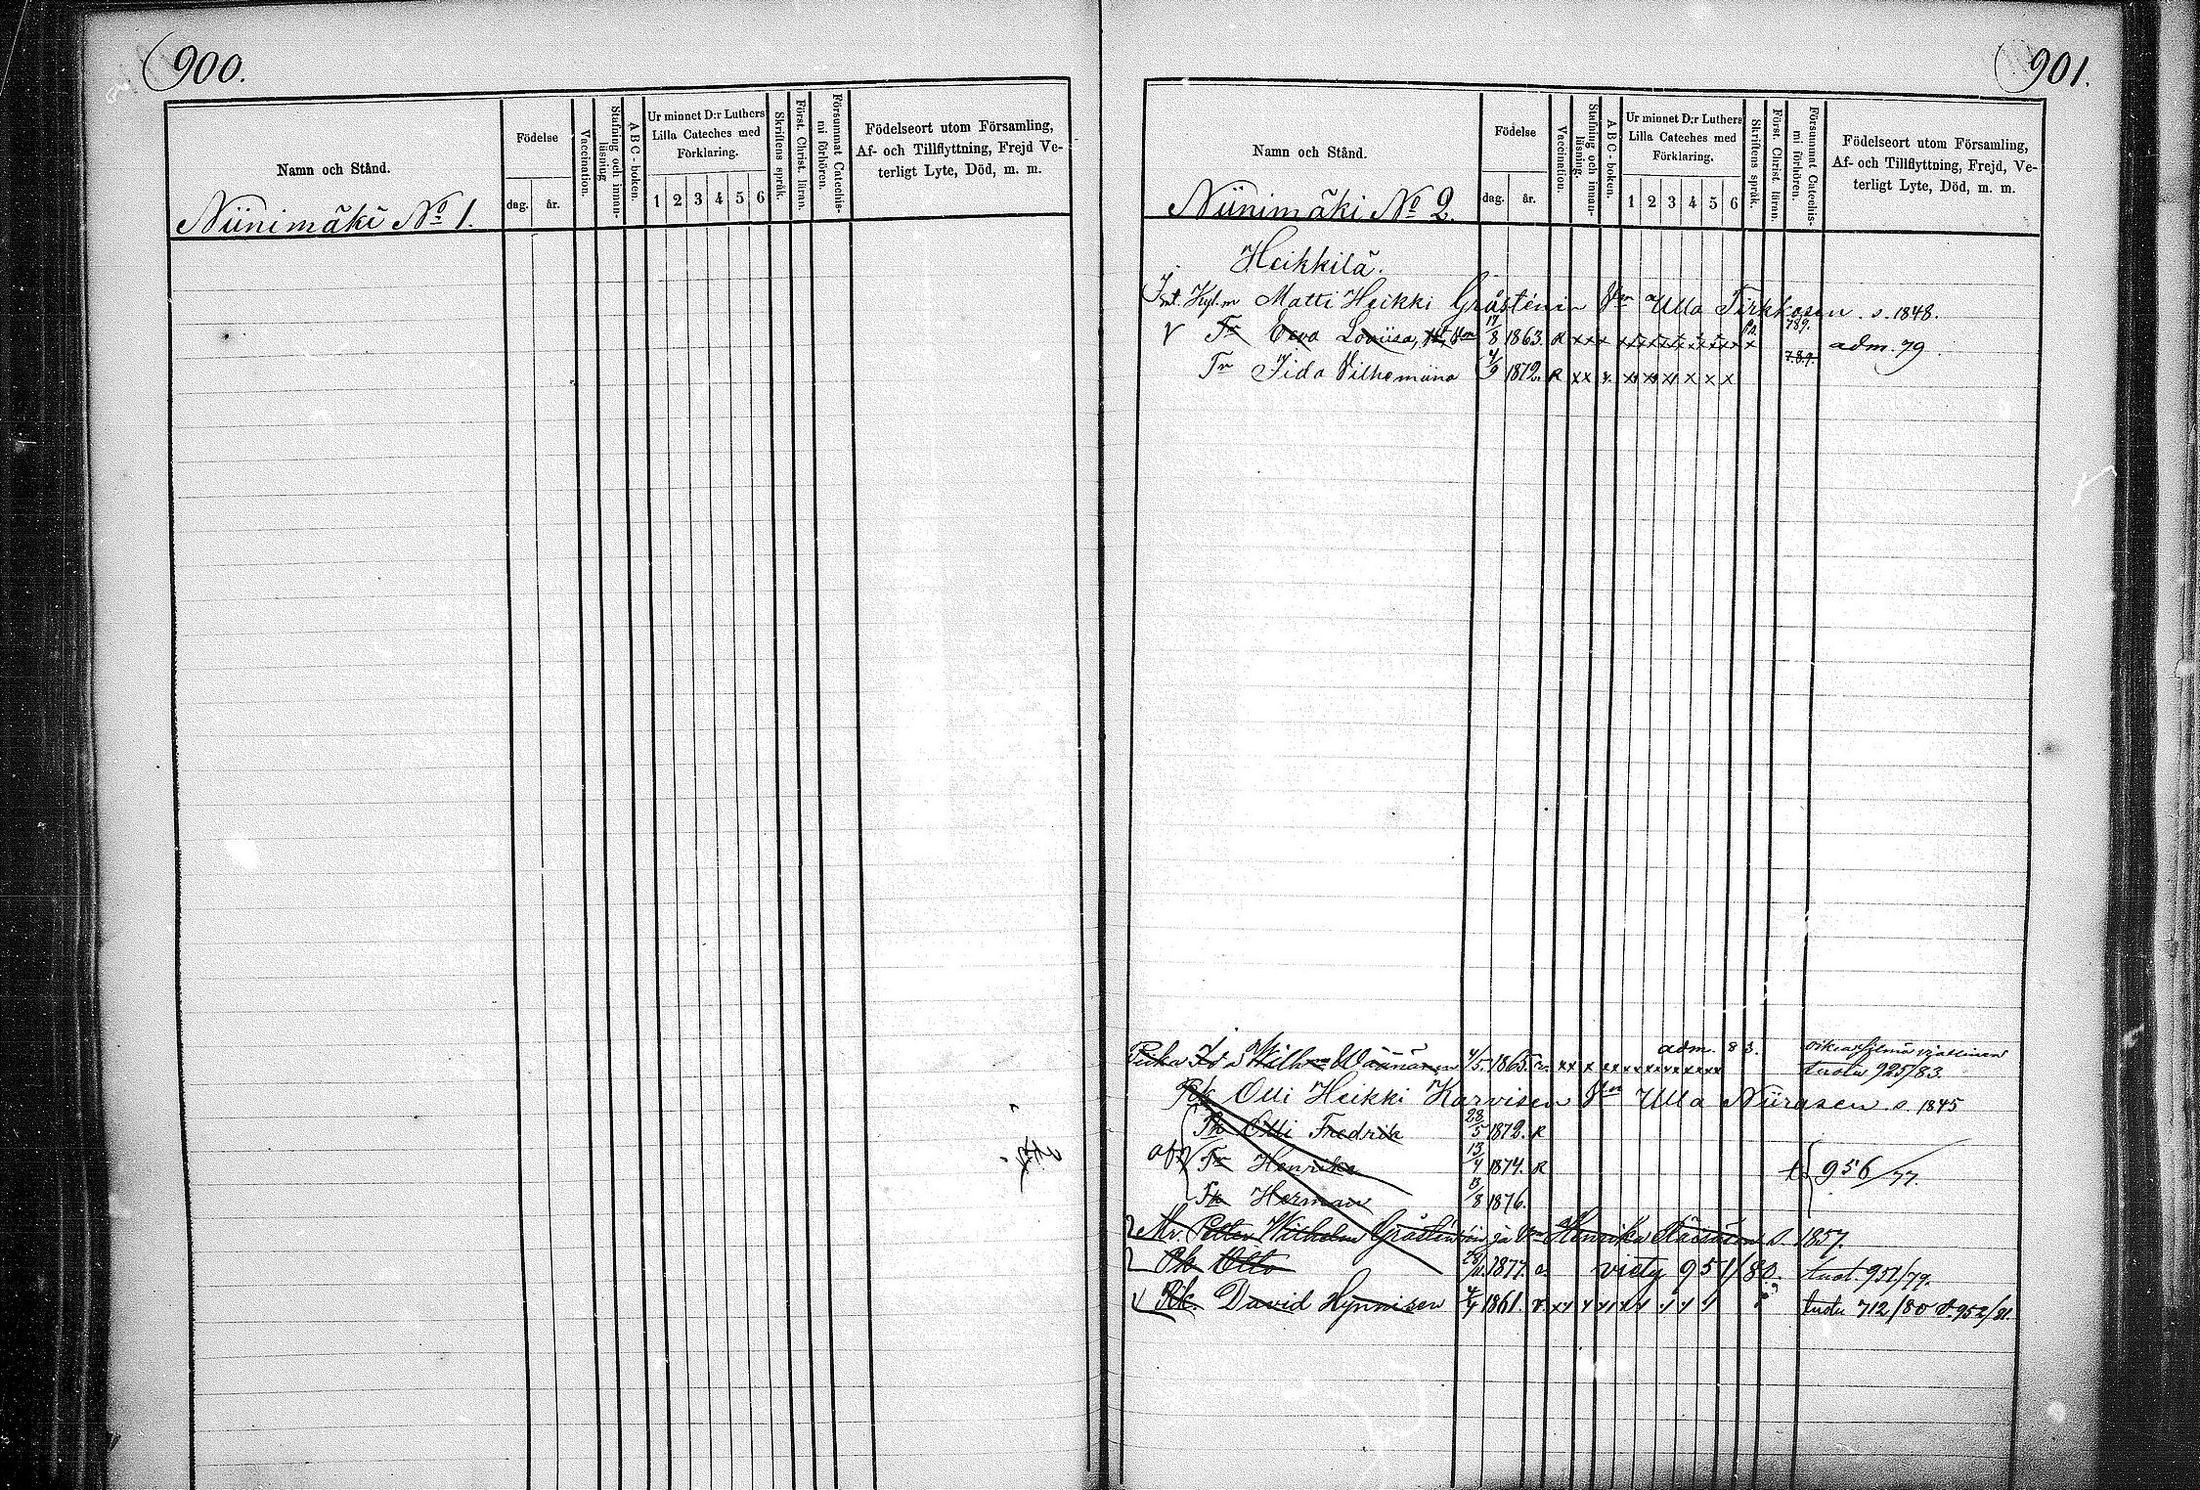 900.
Namn och Stånd.
Födelse
dag.
år.
Vaccination.
Stafning och innan-
läsning
ABC-boken.
Ur minnet D:r Luthers
Lilla Cateches med
Förklaring.
1 2 3 4 5 6
Skriftens språk.
Först. Christ. läran.
Försummat Catechis-
mi förhören.
Födelseort utom Församling,
Af- och Tillflyttning, Frejd Ve-
terligt Lyte, Död, m. m.
Niinimäki No 1.
901.
Namn och Stånd.
Födelse
dag.
år.
Vaccination.
Stafning och innan-
läsning.
ABC-boken.
Ur minnet D:r Luthers
Lilla Cateches med
Förklaring.
1 2 3 4 5 6
Skriftens språk.
Först. Christ. läran.
Försummat Catechis-
mi förhören.
Födelseort utom Församling,
Af- och Tillflyttning, Frejd, Ve-
terligt Lyte, Död, m. m.
Niinimäki No 2.
Heikkilä.
Matti Heikki Gråstenin Ulla Tirkkosen s. 1848.
Tr Eva Loviisa, 17/8 1863. R x x x x x x x x x x 789. adm. 79.
Tr Iida Vilhemiina 4/9 1872. R x x x x x x x x x 7.8.9.
adm. 83.
Piika Wilh Wäänänen 4/5. 1865. tuotu 925/83.
Rk Olli Heikki Karvisen Ulla Niirasen s. 1845
Pk Olli Fredrik 28/5 1872. R
Tr Henrika 13/4 1874. R 956/77.
Pk Herman 13/8 1876.
Mr. Petter Wilhelm Gråstenin ja Henrika s. 1857.
Pk Otto 1877. viety 951/80. tuot. 951/79.
Rk. David Hynnisen 1861. tuotu 712/80 952/81.